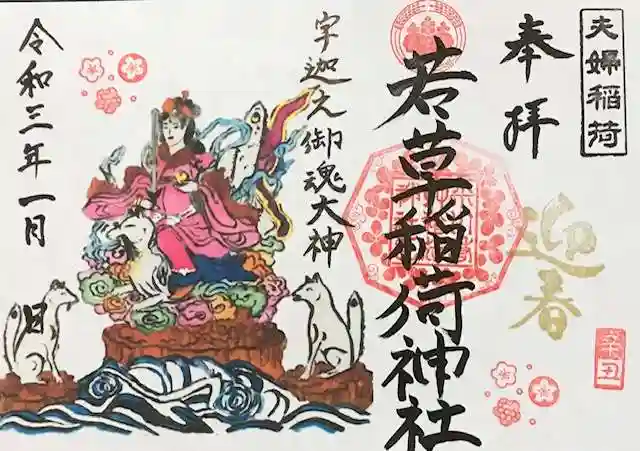 夫婦稲荷
奉拝
迎春
辛丑
若草稲荷神社
宇迦之御魂大神
令和三年一月
日